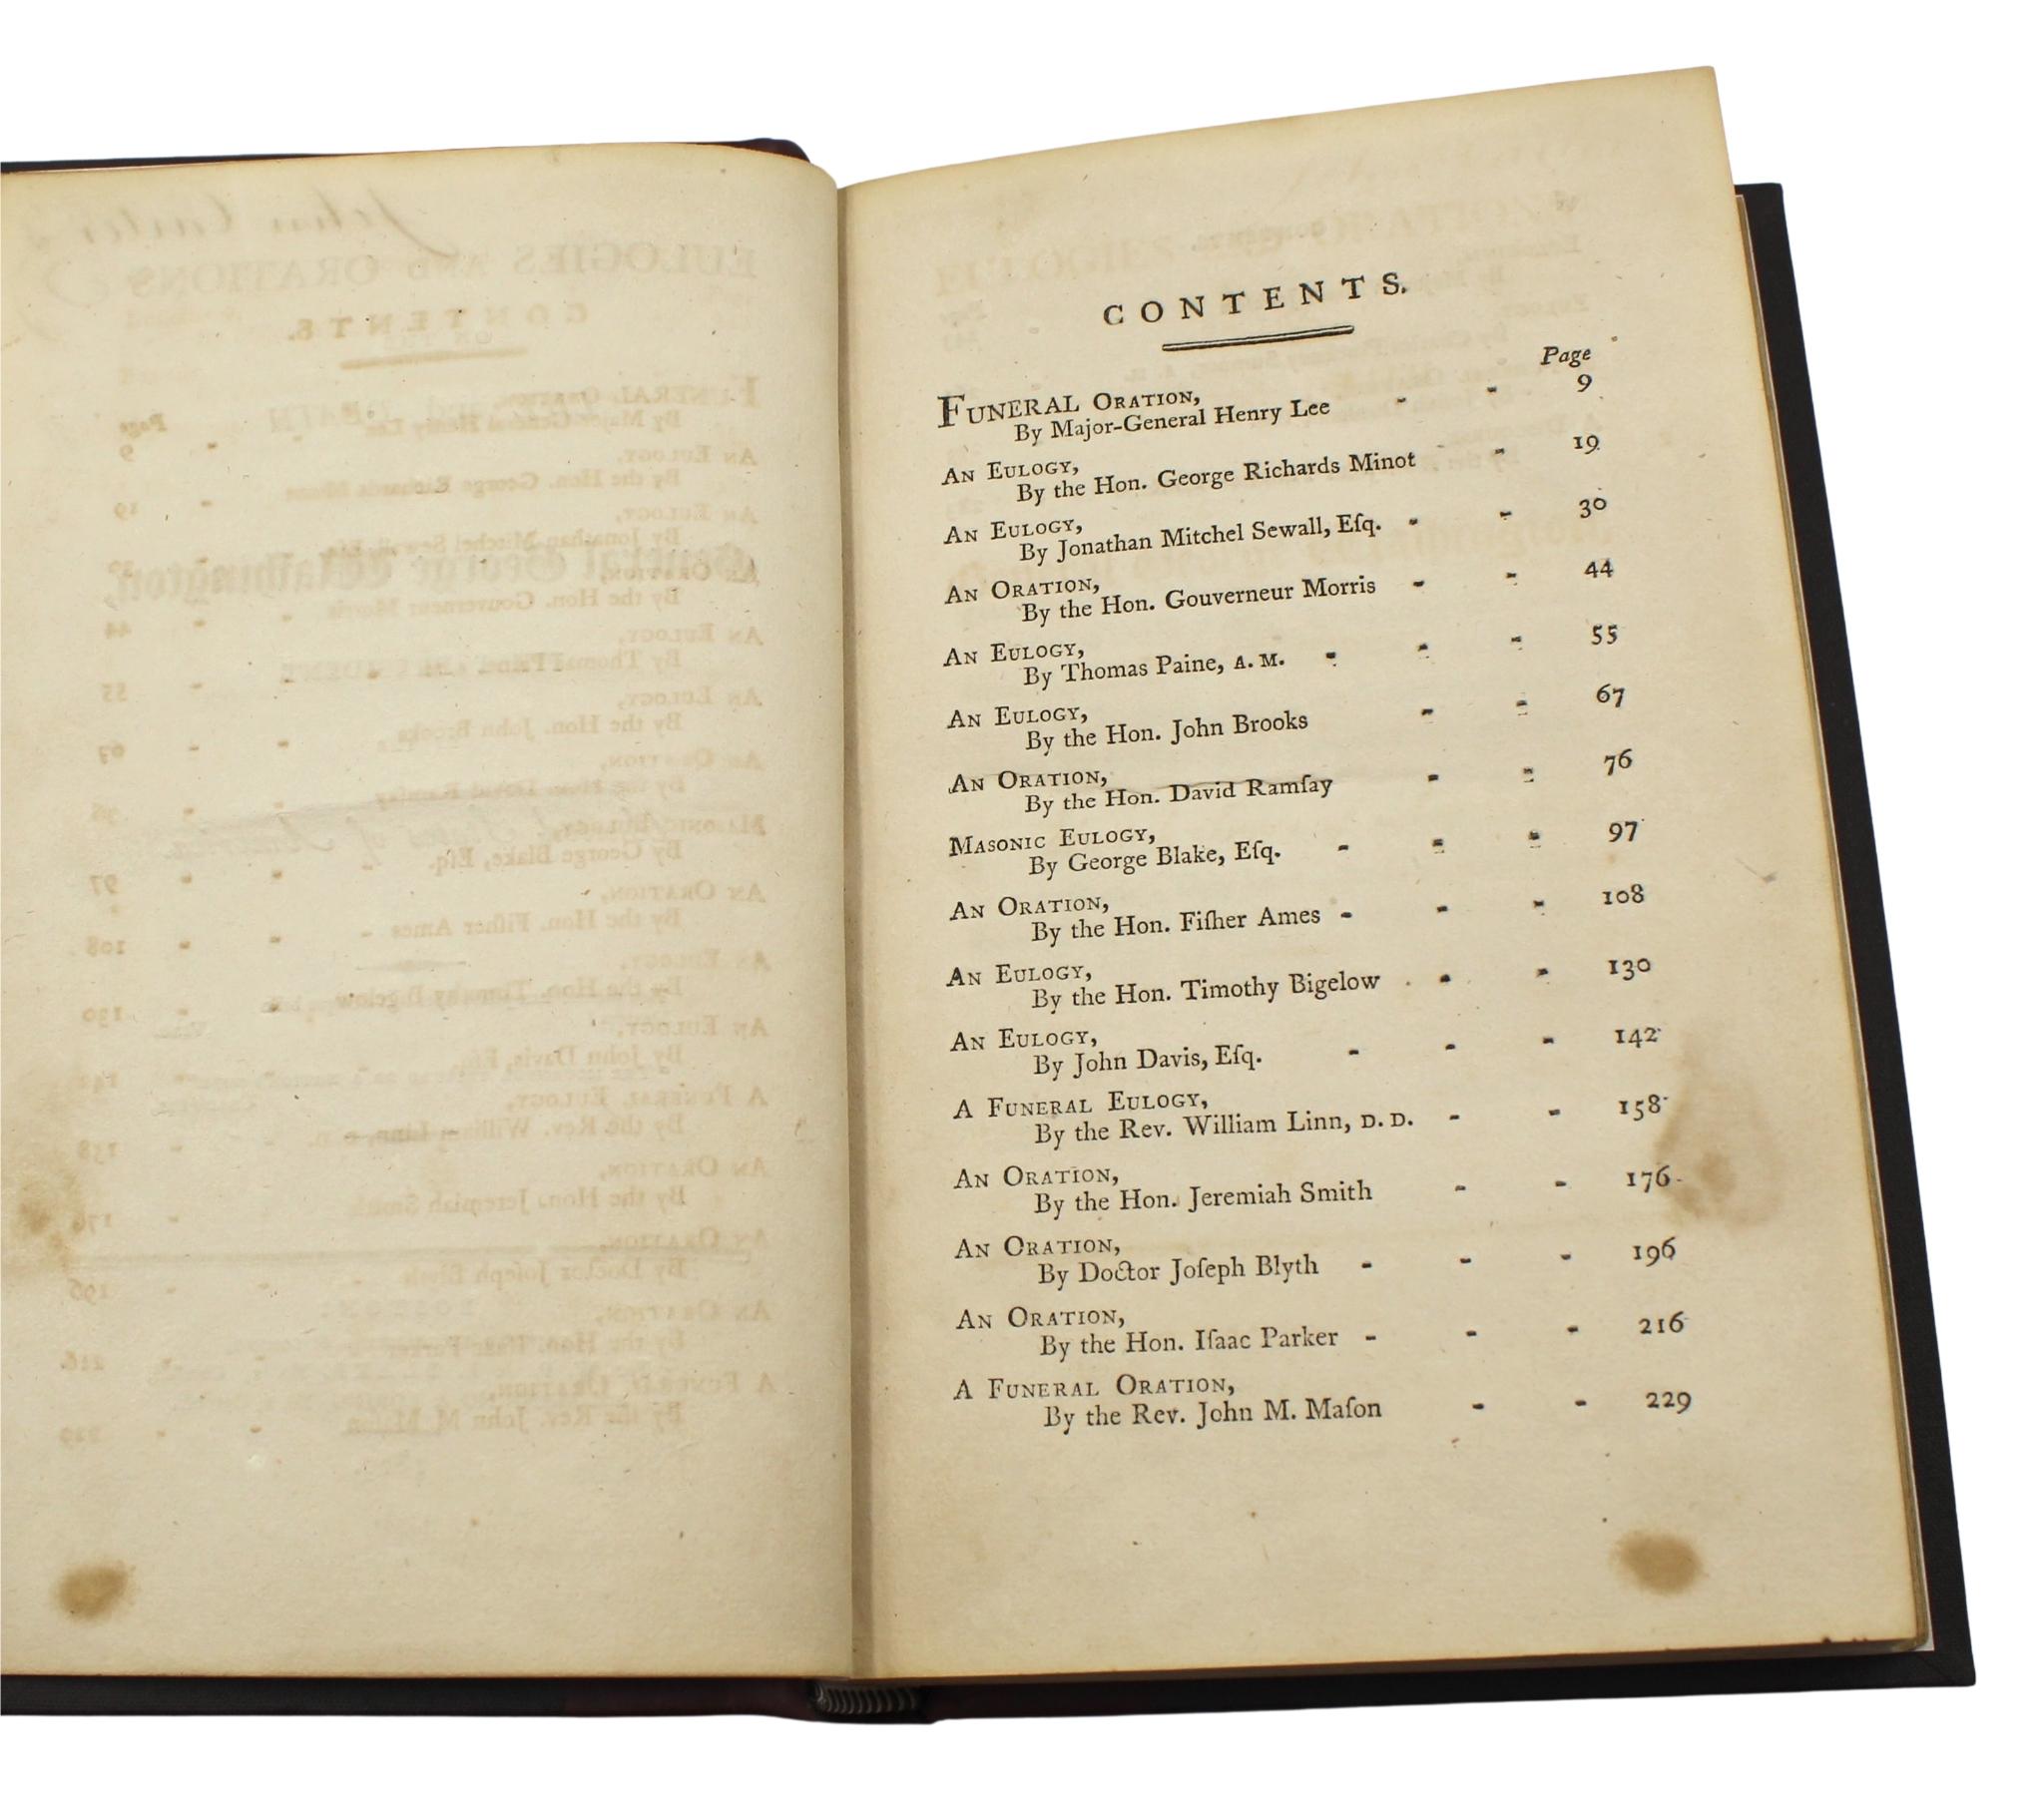 CONTENTS.
Page
FUNERAL ORATION,
By Major-General Henry Lee - - 9
AN EULOGY,
By the Hon. George Richards Minot - - 19
AN EULOGY,
By Jonathan Mitchel Sewall, Eſq. - - 30
AN ORATION,
By the Hon. Gouverneur Morris - - 44
AN EULOGY,
By Thomas Paine, A. M. - - - 55
AN EULOGY,
By the Hon. John Brooks - - 67
AN ORATION,
By the Hon. David Ramſay - - 76
MASONIC EULOGY,
By George Blake, Eſq. - - - 97
AN ORATION,
By the Hon. Fiſher Ames - - - 108
AN EULOGY,
By the Hon. Timothy Bigelow - - 130
AN EULOGY,
By John Davis, Eſq. - - - 142
A FUNERAL EULOGY,
By the Rev. William Linn, D. D. - - 158
AN ORATION,
By the Hon. Jeremiah Smith - - 176
AN ORATION,
By Doctor Joſeph Blyth - - - 196
AN ORATION,
By the Hon. Iſaac Parker - - - 216
A FUNERAL ORATION,
By the Rev. John M. Maſon - - 229